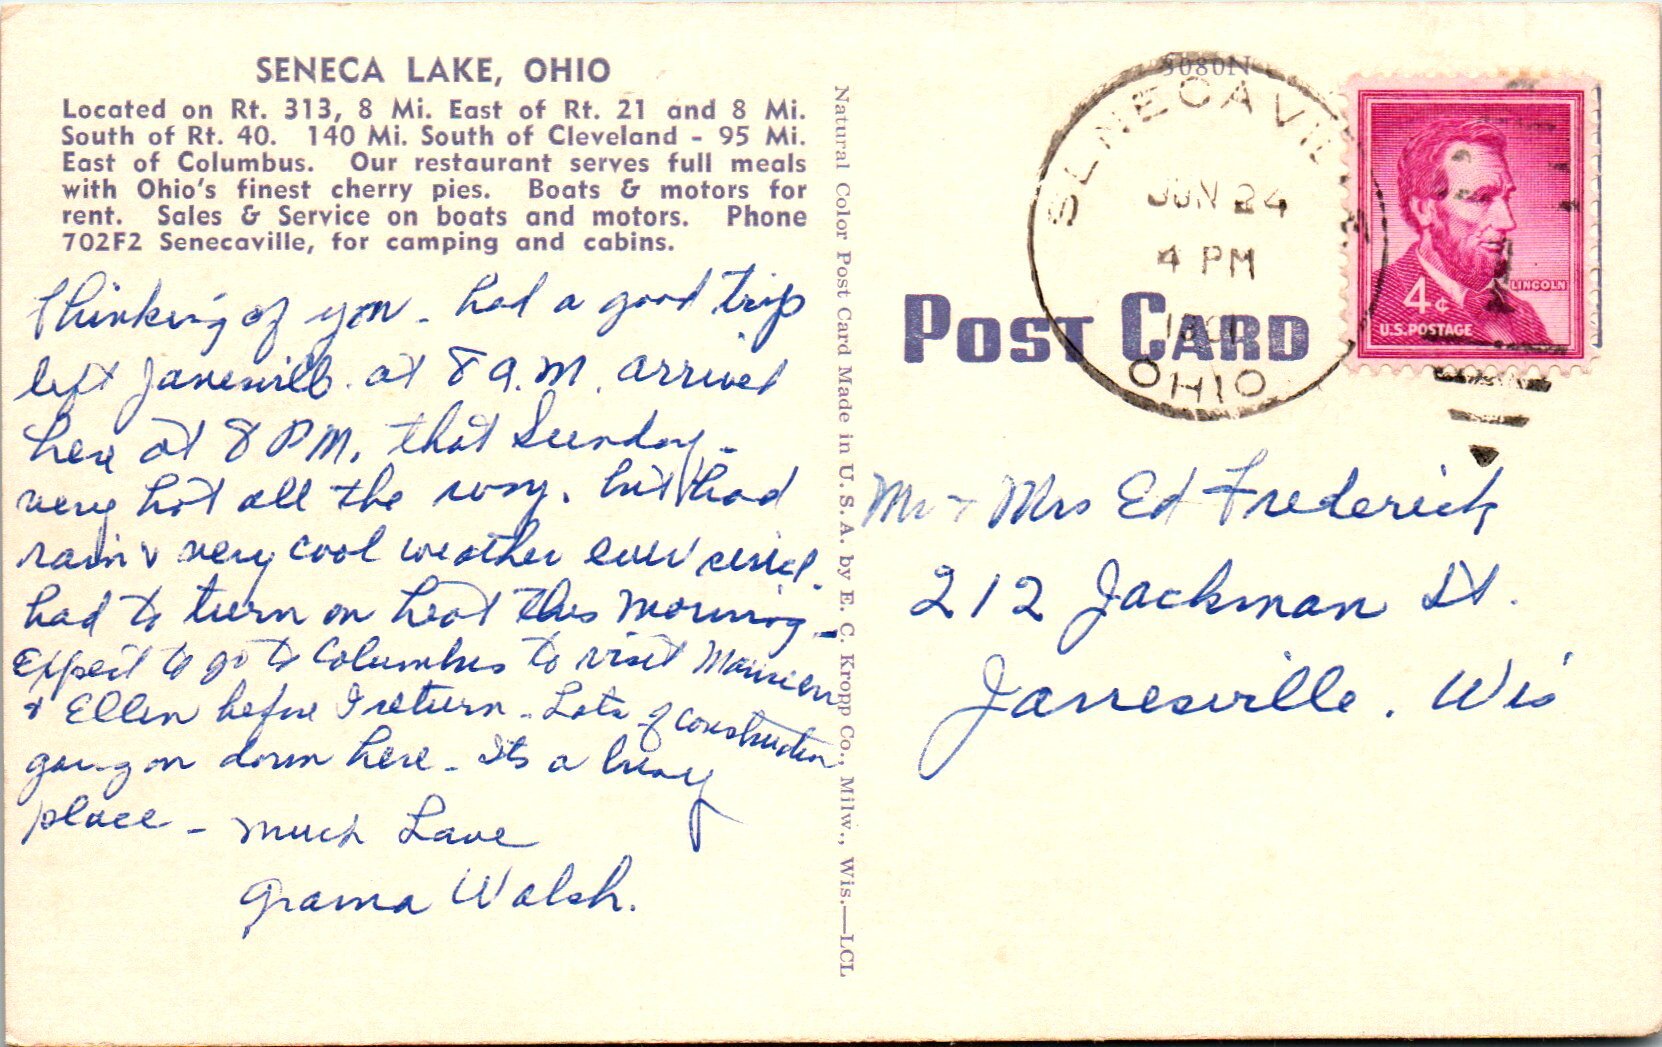 SENECA LAKE, OHIO
Located on Rt. 313, 8 Mi. East of Rt. 21 and 8 Mi.
South of Rt. 40. 140 Mi. South of Cleveland - 95 Mi.
East of Columbus. Our restaurant serves full meals
with Ohio's finest cherry pies. Boats & motors for
rent. Sales & Service on boats and motors. Phone
702F2 Senecaville, for camping and cabins.
Thinking of you - had a good trip
left Janesville at 8 a.m. arrived
here at 8 P.M. that Sunday -
very hot all the way. but had
rain & very cool weather ever since.
had to turn on heat this morning -
Expect to go to Columbus to visit
& Ellen before I return - Lots of construction
going on down here - Its a busy
place - much Love
Grama Walsh.
Natural Color Post Card Made in U. S. A. by E. C. Kropp Co., Milw., Wis.—LCL
8080N
SENECAVILL
JUN 24
4 PM
OHIO
LINCOLN
4¢
U.S. POSTAGE
POST CARD
Mr + Mrs Ed Frederick
212 Jackman St.
Janesville. Wis